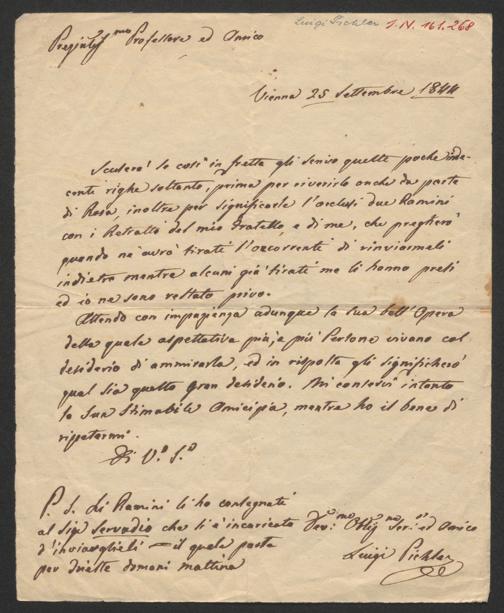 Luigi Pichler I.N. 161.268
Pregiatis.mo Professore ed Amico
Vienna 25 Settembre 1844
Scuserà se così in fretta gli scrivo queste poche inde-
centi righe soltanto, prima per riverirlo anche da parte
di Rosa, inoltre per significarle l'acclusi due Ramini
con i Retratto del mio Fratello, e di me, che pregherò
quando ne avrà tirati l'occorrente di rinviarmeli
indietro mentre alcuni già tirati me li hanno presi
ed io ne sono restato privo.
Attendo con impazienza adunque la sua bell'Opera
della quale aspettativa più, e più Persone vivano col
desiderio di ammirarla, ed in risposta gli significherò
qual sia questo gran desiderio. Mi conservi intanto
la Sua Stimabile Amicizia, mentre ho il bene di
rippetermi
Di V.a S.a
P. S. Li Ramini li ho consegnati
al Sigr Servadio che li è incaricato Dev.mo Oblig.mo Ser.e ed Amico
d'inviarglieli = il quale parte Luigi Pichler
per Trieste domani mattina